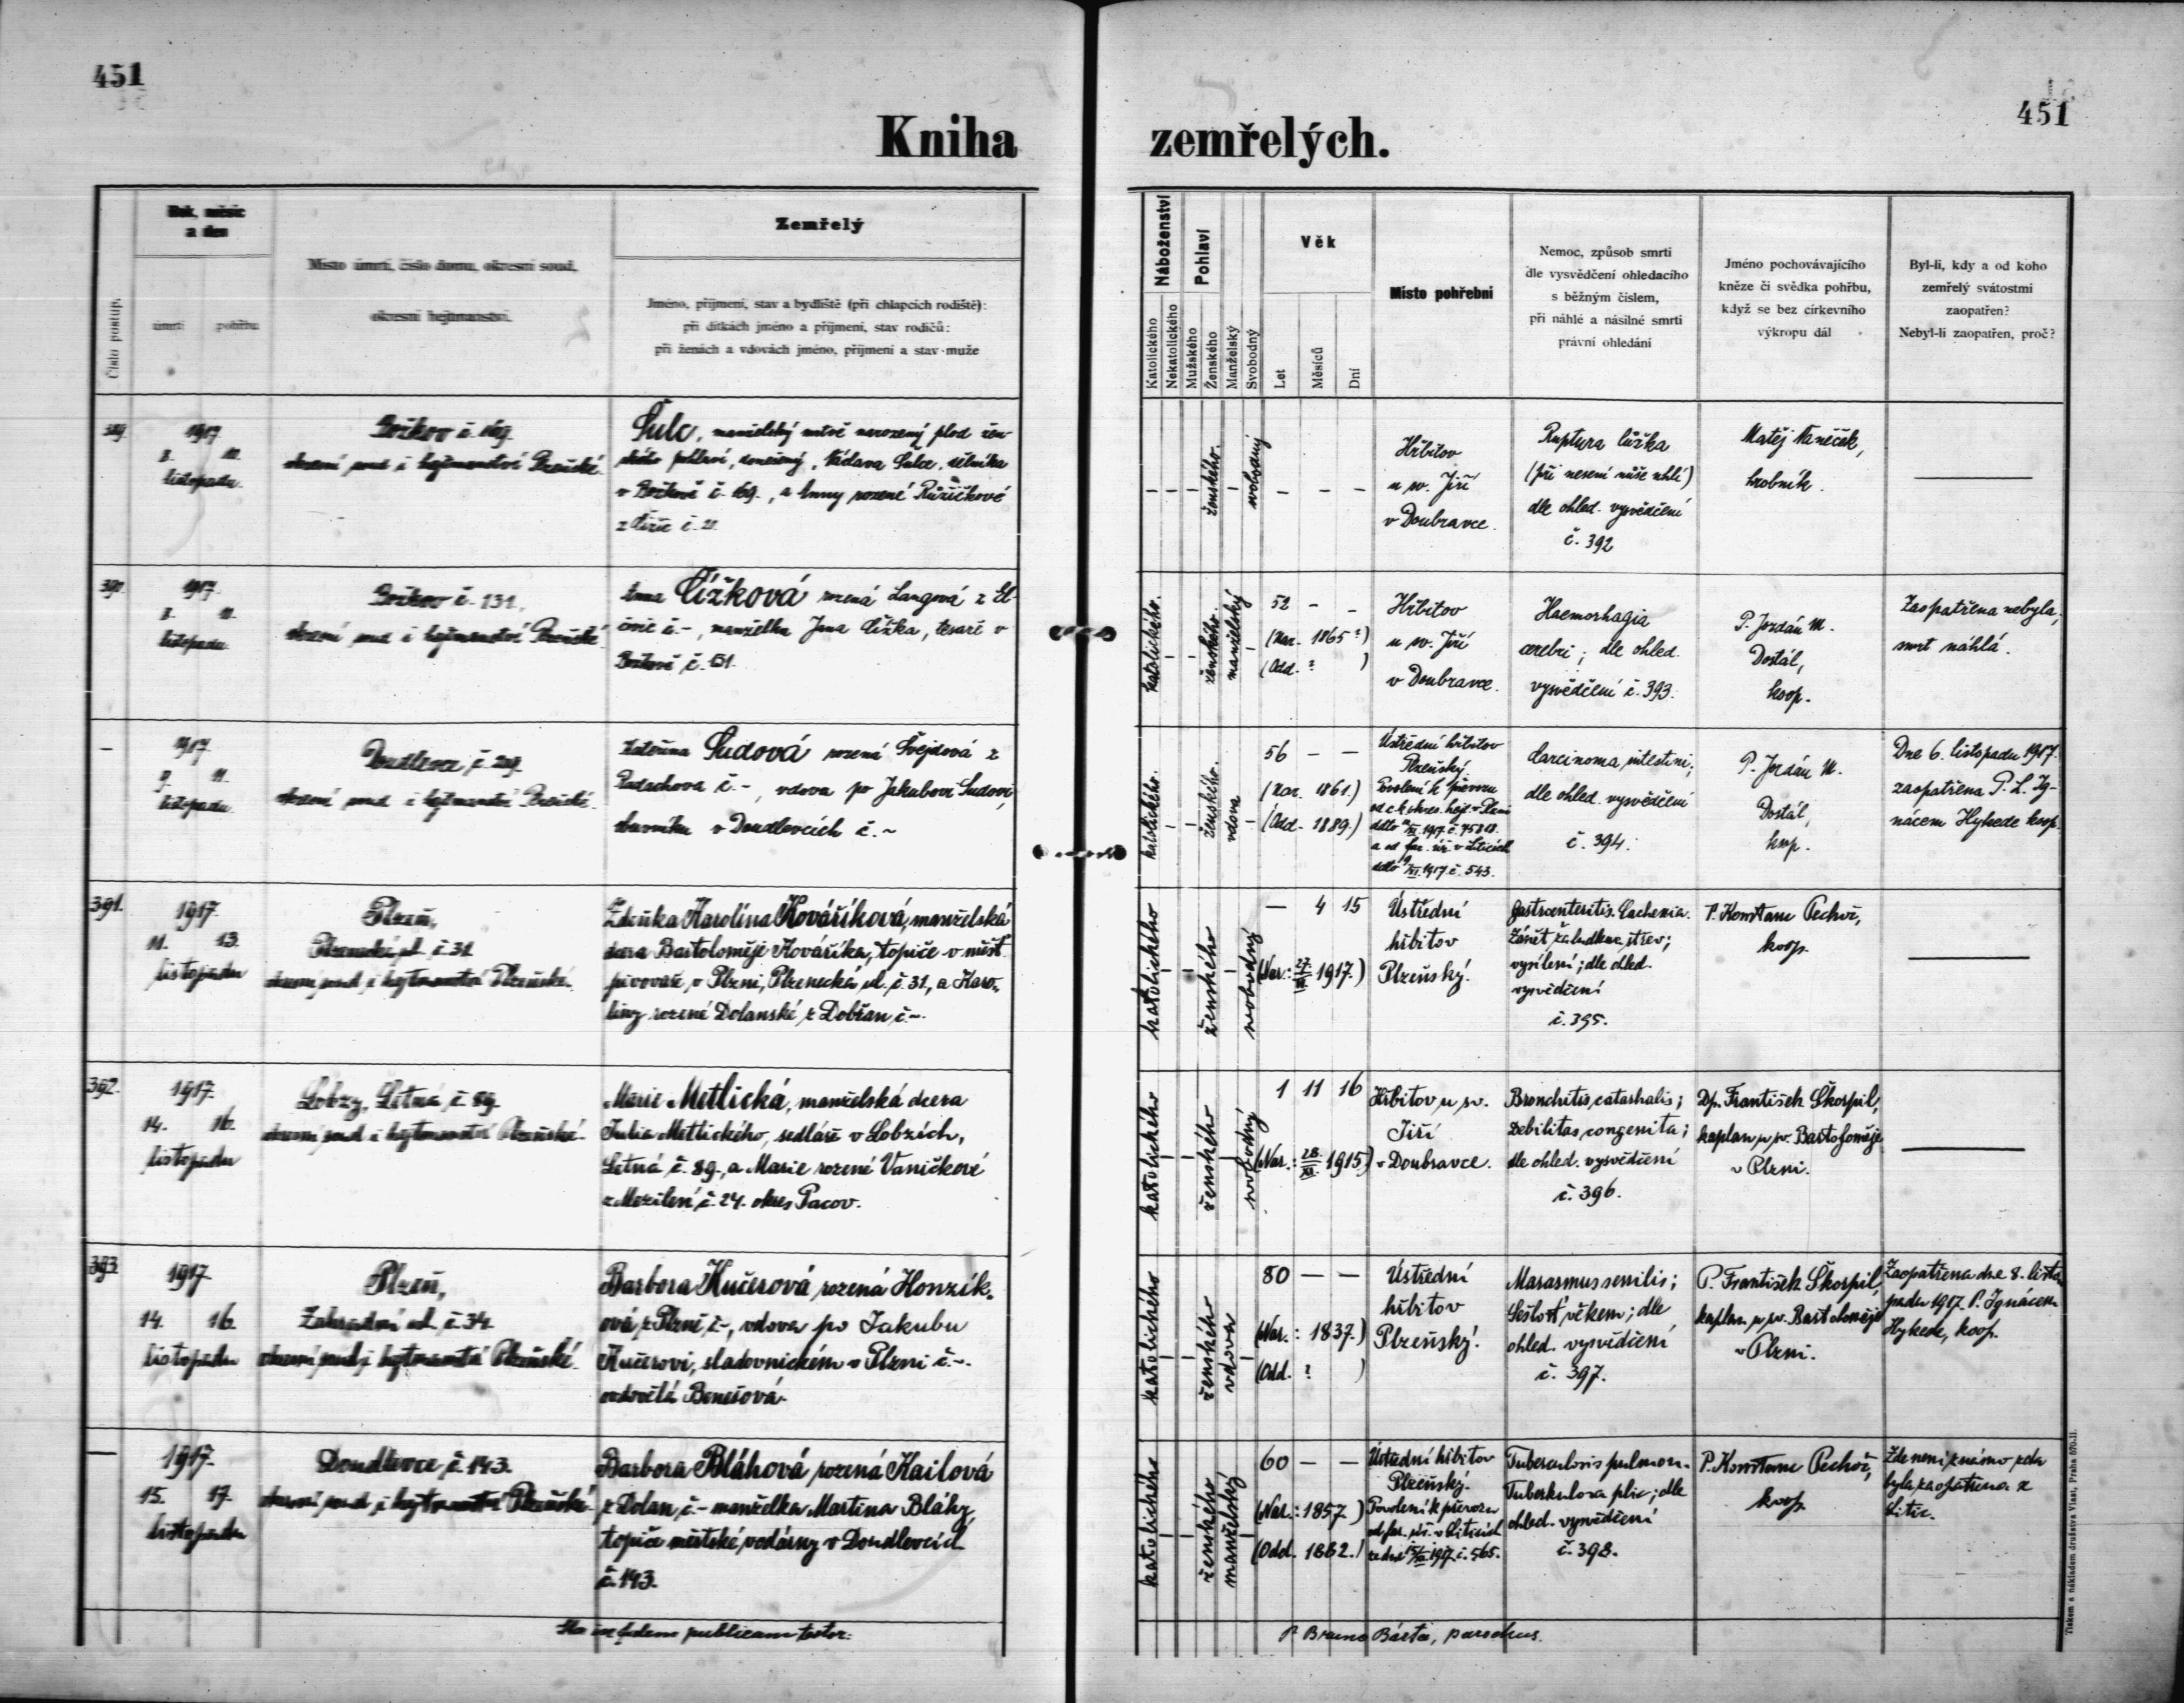 451
451
Kniha zemřelých.
Číslo postup.
Rok, měsíc
a den
úmrtí
pohřbu
Místo úmrtí, číslo domu, okresní soud,
okresní hejtmanství.
Zemřelý
Jméno, příjmení, stav a bydliště (při chlapcích rodiště):
při dítkách jméno a příjmení, stav rodičů:
při ženách a vdovách jméno, příjmení a stav muže
Náboženství
Katolického
Nekatolického
Pohlaví
Mužského
Ženského
Manželský
Svobodný
Věk
Let
Měsíců
Dní
Místo pohřební
Nemoc, způsob smrti
dle vysvědčení ohledacího
s běžným číslem,
při náhlé a násilné smrti
právní ohledání
Jméno pochovávajícího
kněze či svědka pohřbu,
když se bez církevního
výkropu dál
Byl-li, kdy a od koho
zemřelý svátostmi
zaopatřen?
Nebyl-li zaopatřen, proč?
389.
1917
listopadu.
Božkov č. 169.
okresní soud i hejtmanství Plzeňské.
Šulc, manželský mrtvě narozený plod žen-
ského pohlaví, donešený, Václava Šulce, dělníka
v Božkově č. 169., a Anny rozené Růžičkové
č. 21.
ženského.
svobodný
Hřbitov
u sv. Jiří
v Doubravce.
Ruptura lůžka
(při nesení nůše uhlí)
dle ohled. vysvědčení
č. 392
Matěj Vaněček,
hrobník.
390.
1917.
listopadu.
Božkov č. 131.,
okresní soud i hejtmanství Plzeňské.
Anna Čížková rozená Langová z
č. -, manželka Jana Čížka, tesaře v
Božkově č. 131.
katolického.
ženského.
manželský
52 - -
(Nar. 1865?)
(Odd. ? )
Hřbitov
u sv. Jiří
v Doubravce.
Haemorhagia
cerebri; dle ohled.
vysvědčení č. 393.
P. Jordán M.
Dostál,
koop.
Zaopatřena nebyla,
smrt náhlá.
-
1917.
9. 11.
listopadu.
Doudlevce č. 29.
okresní soud i hejtmanství Plzeňské.
Kateřina Sudová rozená Švejdová z
č. -, vdova po Jakubovi Sudovi,
v Doudlevcích č. -
katolického.
ženského.
vdova
56 - -
(Nar. 1861.)
(Odd. 1889.)
Ústřední hřbitov
Plzeňský.
Povolení k převozu
od c.k. okres. hejt. v Plzni
XI. 1917. č. 45818.
a od far. úř. v Liticích
ddto 9/XI. 1917. č. 543.
Carcinoma intestini;
dle ohled. vysvědčení
č. 394.
P. Jordán M.
Dostál,
koop.
Dne 6. listopadu 1917.
zaopatřena P. L. Ig-
nácem Hykede koop.
391.
1917.
11. 13.
listopadu
Plzeň,
Plzenecká ul. č. 31
okresní soud i hejtmanství Plzeňské.
Zdeňka Karolina Kováříková, manželská
dcera Bartoloměje Kováříka, topiče v měšť.
pivovaře v Plzni, Plzenecká ul. č. 31., a Karo-
liny rozené Dolanské z Dobřan č. -.
katolického
ženského
svobodný
- 4 15
(Nar.: 27/VI. 1917.)
Ústřední
hřbitov
Plzeňský.
Gastroenteritis. Cachexia.
Zánět žaludku a střev;
vysílení; dle ohled.
vysvědčení
č. 395.
P. Konstanc Pechoč,
koop.
392.
1917.
14. 16.
listopadu
Lobzy, Letná č. 89.
okresní soud i hejtmanství Plzeňské.
Marie Metlická, manželská dcera
Julia Metlického, sedláře v Lobzích,
Letná č. 89., a Marie rozené Vaničkové
z Mezilesí č. 24. okres Pacov.
katolického
ženského
svobodný
1 11 16
(Nar.: 28./XI. 1915.)
Hřbitov u sv.
Jiří
v Doubravce.
Bronchitis catarhalis;
Debilitas congenita;
dle ohled. vysvědčení
č. 396.
Dp. František Škorpil,
kaplan u sv. Bartoloměje
v Plzni.
393.
1917.
14. 16.
listopadu
Plzeň,
Zahradní ul. č. 34.
okresní soud i hejtmanství Plzeňské.
Barbora Kučerová rozená Honzík-
ová z Plzně č. -, vdova po Jakubu
Kučerovi, sladovnickém v Plzni č. -.
ovdovělá Benešová.
katolického
ženského
vdova
80 - -
(Nar.: 1837.)
(Odd. ? )
Ústřední
hřbitov
Plzeňský.
Marasmus senilis;
Sešlosť věkem; dle
ohled. vysvědčení
č. 397.
P. František Škorpil,
kaplan u sv. Bartoloměje
v Plzni.
Zaopatřena dne 8. listo-
padu 1917. P. Ignácem
Hykede, koop.
-
1917.
15. 17.
listopadu
Doudlevce č. 143.
okresní soud i hejtmanství Plzeňské.
Barbora Bláhová rozená Kailová
z Dolan č. - manželka Martina Bláhy,
topiče městské vodárny v Doudlevcích
č. 143.
katolického
ženského
manželský
60 - -
(Nar.: 1857.)
(Odd. 1882.)
Ústřední hřbitov
Plzeňský.
Povolení k převozu
od far. úř. v Liticích
ze dne 15/XI. 1917. č. 565.
Tuberculosis pulmon.
Tuberkulosa plic; dle
ohled. vysvědčení
č. 398.
P. Konstanc Pechoč,
koop.
Zde není známo zda
byla zaopatřena z
Litic.
Ita in fidem publicam testor:
P. Bruno Bárta, parochus.
Tiskem a nákladem družstva Vlast, Praha 570-II.